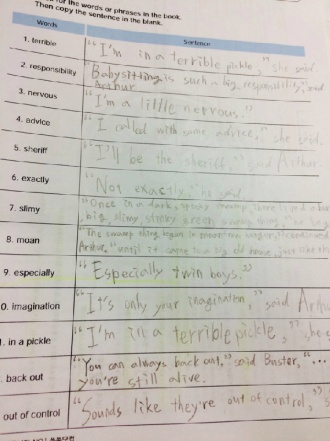 for the words or phrases in the book.
Then copy the sentence in the blank.
Words Sentence
1. terrible "I'm in a terrible pickle," she said.
2. responsibility Babysitting is such a big responsibility, and
Arthur
3. nervous "I'm a little nervous."
4. advice "I called with some advice," she said.
5. sheriff "I'll be the sheriff," said Arthur
6. exactly "Not exactly," he said.
7. slimy "Once in a dark, sticky swamp there lived a
big, slimy, sticky green swamp thing," he
8. moan "The swamp thing began to moan
Arthur, "until it came to a big old house, just like th
9. especially "Especially twin boys."
0. imagination "It's only your imagination," said Arthu
. in a pickle "I'm in a terrible pickle," she s
. back out "You can always back out," said Buster, "...
you're still alive.
out of control "Sounds like they're out of control," s